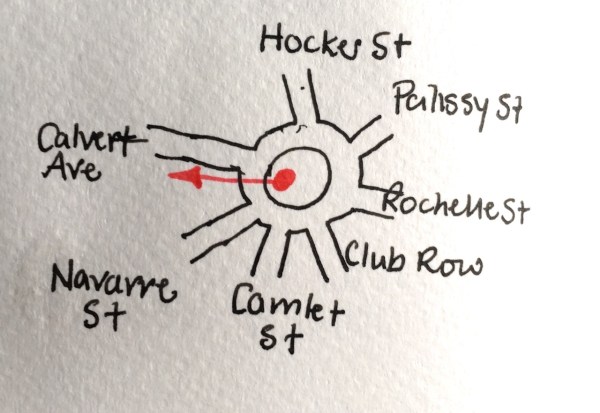 Hocker St
Palissy St
Calvert
Ave
Rochelle St
Club Row
Navarre
St
Camlet
St